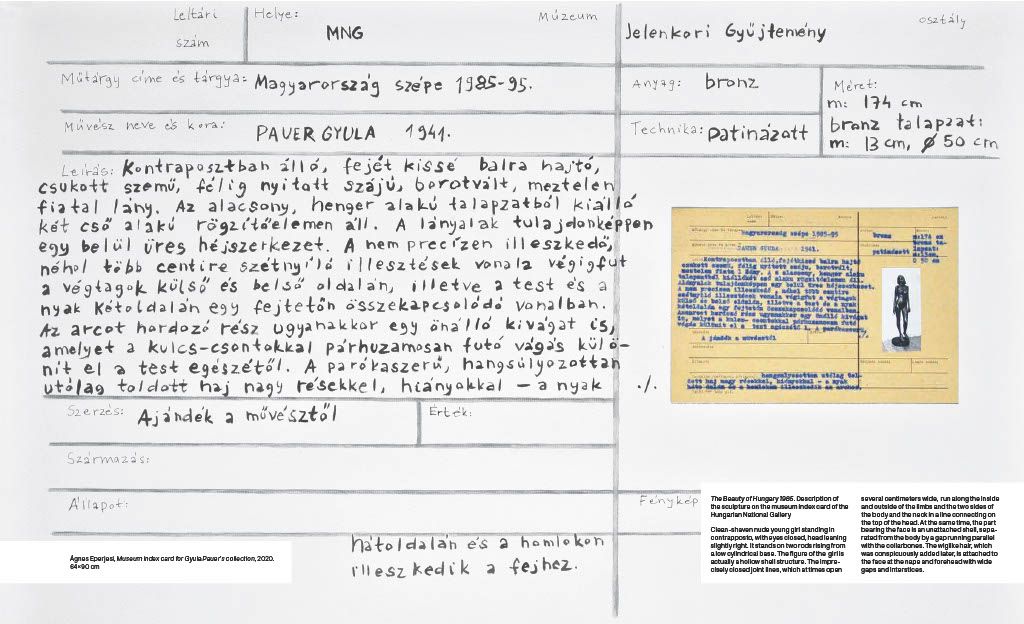 Leltári szám
Helye: MNG Múzeum
Jelenkori Gyűjtemény osztály
Műtárgy címe és tárgya: Magyarország szépe 1985-95.
Anyag: bronz
Méret:
m: 174 cm
bronz talapzat:
m: 13 cm, ø 50 cm
Művész neve és kora: PAUER GYULA 1941.
Technika: patinázott
Leírás: Kontraposztban álló, fejét kissé balra hajtó,
csukott szemű, félig nyitott szájú, borotvált, meztelen
fiatal lány. Az alacsony, henger alakú talapzatból kiálló
két cső alakú rögzítőelemen áll. A lányalak tulajdonképpen
egy belül üres héjszerkezet. A nem precízen illeszkedő,
néhol több centire szétnyíló illesztések vonala végigfut
a végtagok külső és belső oldalán, illetve a test és a
nyak kétoldalán egy fejtetőn összekapcsolódó vonalban.
Az arcot hordozó rész ugyanakkor egy önálló kivágat is,
amelyet a kulcs-csontokkal párhuzamosan futó vágás külö-
nít el a test egészétől. A parókaszerű, hangsúlyozottan
utólag toldott haj nagy résekkel, hiányokkal – a nyak ./.
Szerzés: Ajándék a művésztől
Érték:
Származás:
Állapot:
Fénykép
hátoldalán és a homlokon
illeszkedik a fejhez.
Magyarország szépe 1985-95
PAUER GYULA 1941.
bronz
patinázott
Ajándék a művésztől
Ágnes Eperjesi, Museum index card for Gyula Pauer's collection, 2020.
64×90 cm
The Beauty of Hungary 1985. Description of
the sculpture on the museum index card of the
Hungarian National Gallery
Clean-shaven nude young girl standing in
contrapposto, with eyes closed, head leaning
slightly right. It stands on two rods rising from
a low cylindrical base. The figure of the girl is
actually a hollow shell structure. The impre-
cisely closed joint lines, which at times open
several centimeters wide, run along the inside
and outside of the limbs and the two sides of
the body and the neck in a line connecting on
the top of the head. At the same time, the part
bearing the face is an unattached shell, sepa-
rated from the body by a gap running parallel
with the collarbones. The wiglike hair, which
was conspicuously added later, is attached to
the face at the nape and forehead with wide
gaps and interstices.